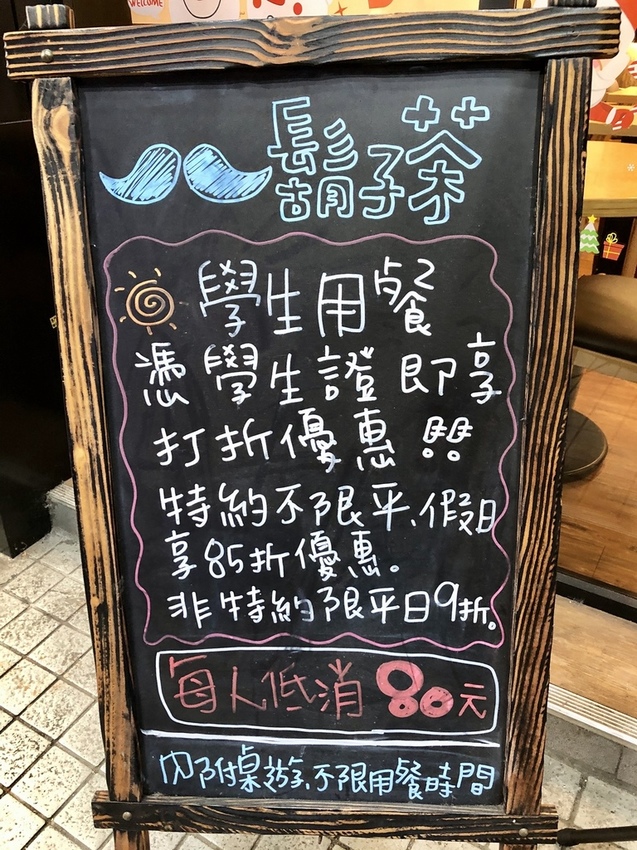 WELCOME
鬍子茶
學生用餐
憑學生證即享
打折優惠!!
特約不限平、假日
享85折優惠。
非特約限平日9折。
每人低消80元
內附桌遊、不限用餐時間